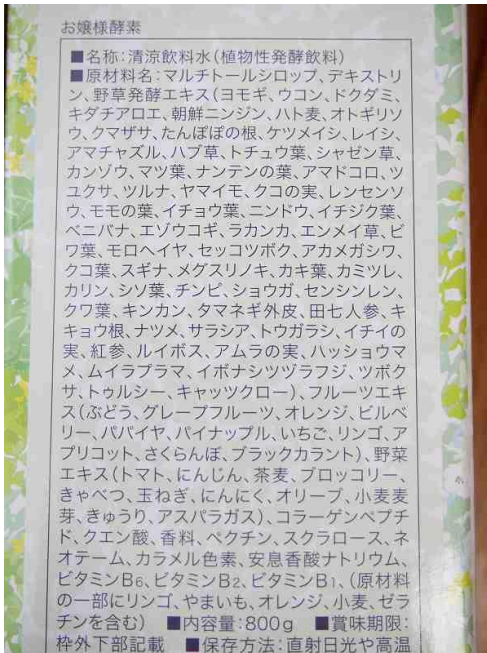 お嬢様酵素
■名称:清涼飲料水(植物性発酵飲料)
■原材料名:マルチトールシロップ、デキストリ
ン、野草発酵エキス(ヨモギ、ウコン、ドクダミ、
キダチアロエ、朝鮮ニンジン、ハト麦、オトギリソ
ウ、クマザサ、たんぽぽの根、ケツメイシ、レイシ、
アマチャズル、ハブ草、トチュウ葉、シャゼン草、
カンゾウ、マツ葉、ナンテンの葉、アマドコロ、ツ
ユクサ、ツルナ、ヤマイモ、クコの実、レンセンソ
ウ、モモの葉、イチョウ葉、ニンドウ、イチジク葉、
ベニバナ、エゾウコギ、ラカンカ、エンメイ草、ビ
ワ葉、モロヘイヤ、セッコツボク、アカメガシワ、
クコ葉、スギナ、メグスリノキ、カキ葉、カミツレ、
カリン、シソ葉、チンピ、ショウガ、センシンレン、
クワ葉、キンカン、タマネギ外皮、田七人参、キ
キョウ根、ナツメ、サラシア、トウガラシ、イチイの
実、紅参、ルイボス、アムラの実、ハッショウマ
メ、ムイラプラマ、イボナシツヅラフジ、ツボク
サ、トゥルシー、キャッツクロー)、フルーツエキ
ス(ぶどう、グレープフルーツ、オレンジ、ビルベ
リー、パパイヤ、パイナップル、いちご、リンゴ、ア
プリコット、さくらんぼ、ブラックカラント)、野菜
エキス(トマト、にんじん、茶麦、ブロッコリー、
きゃべつ、玉ねぎ、にんにく、オリーブ、小麦麦
芽、きゅうり、アスパラガス)、コラーゲンペプチ
ド、クエン酸、香料、ペクチン、スクラロース、ネ
オテーム、カラメル色素、安息香酸ナトリウム、
ビタミンB6、ビタミンB2、ビタミンB1、(原材料
の一部にリンゴ、やまいも、オレンジ、小麦、ゼラ
チンを含む) ■内容量:800g ■賞味期限:
枠外下部記載 ■保存方法:直射日光や高温